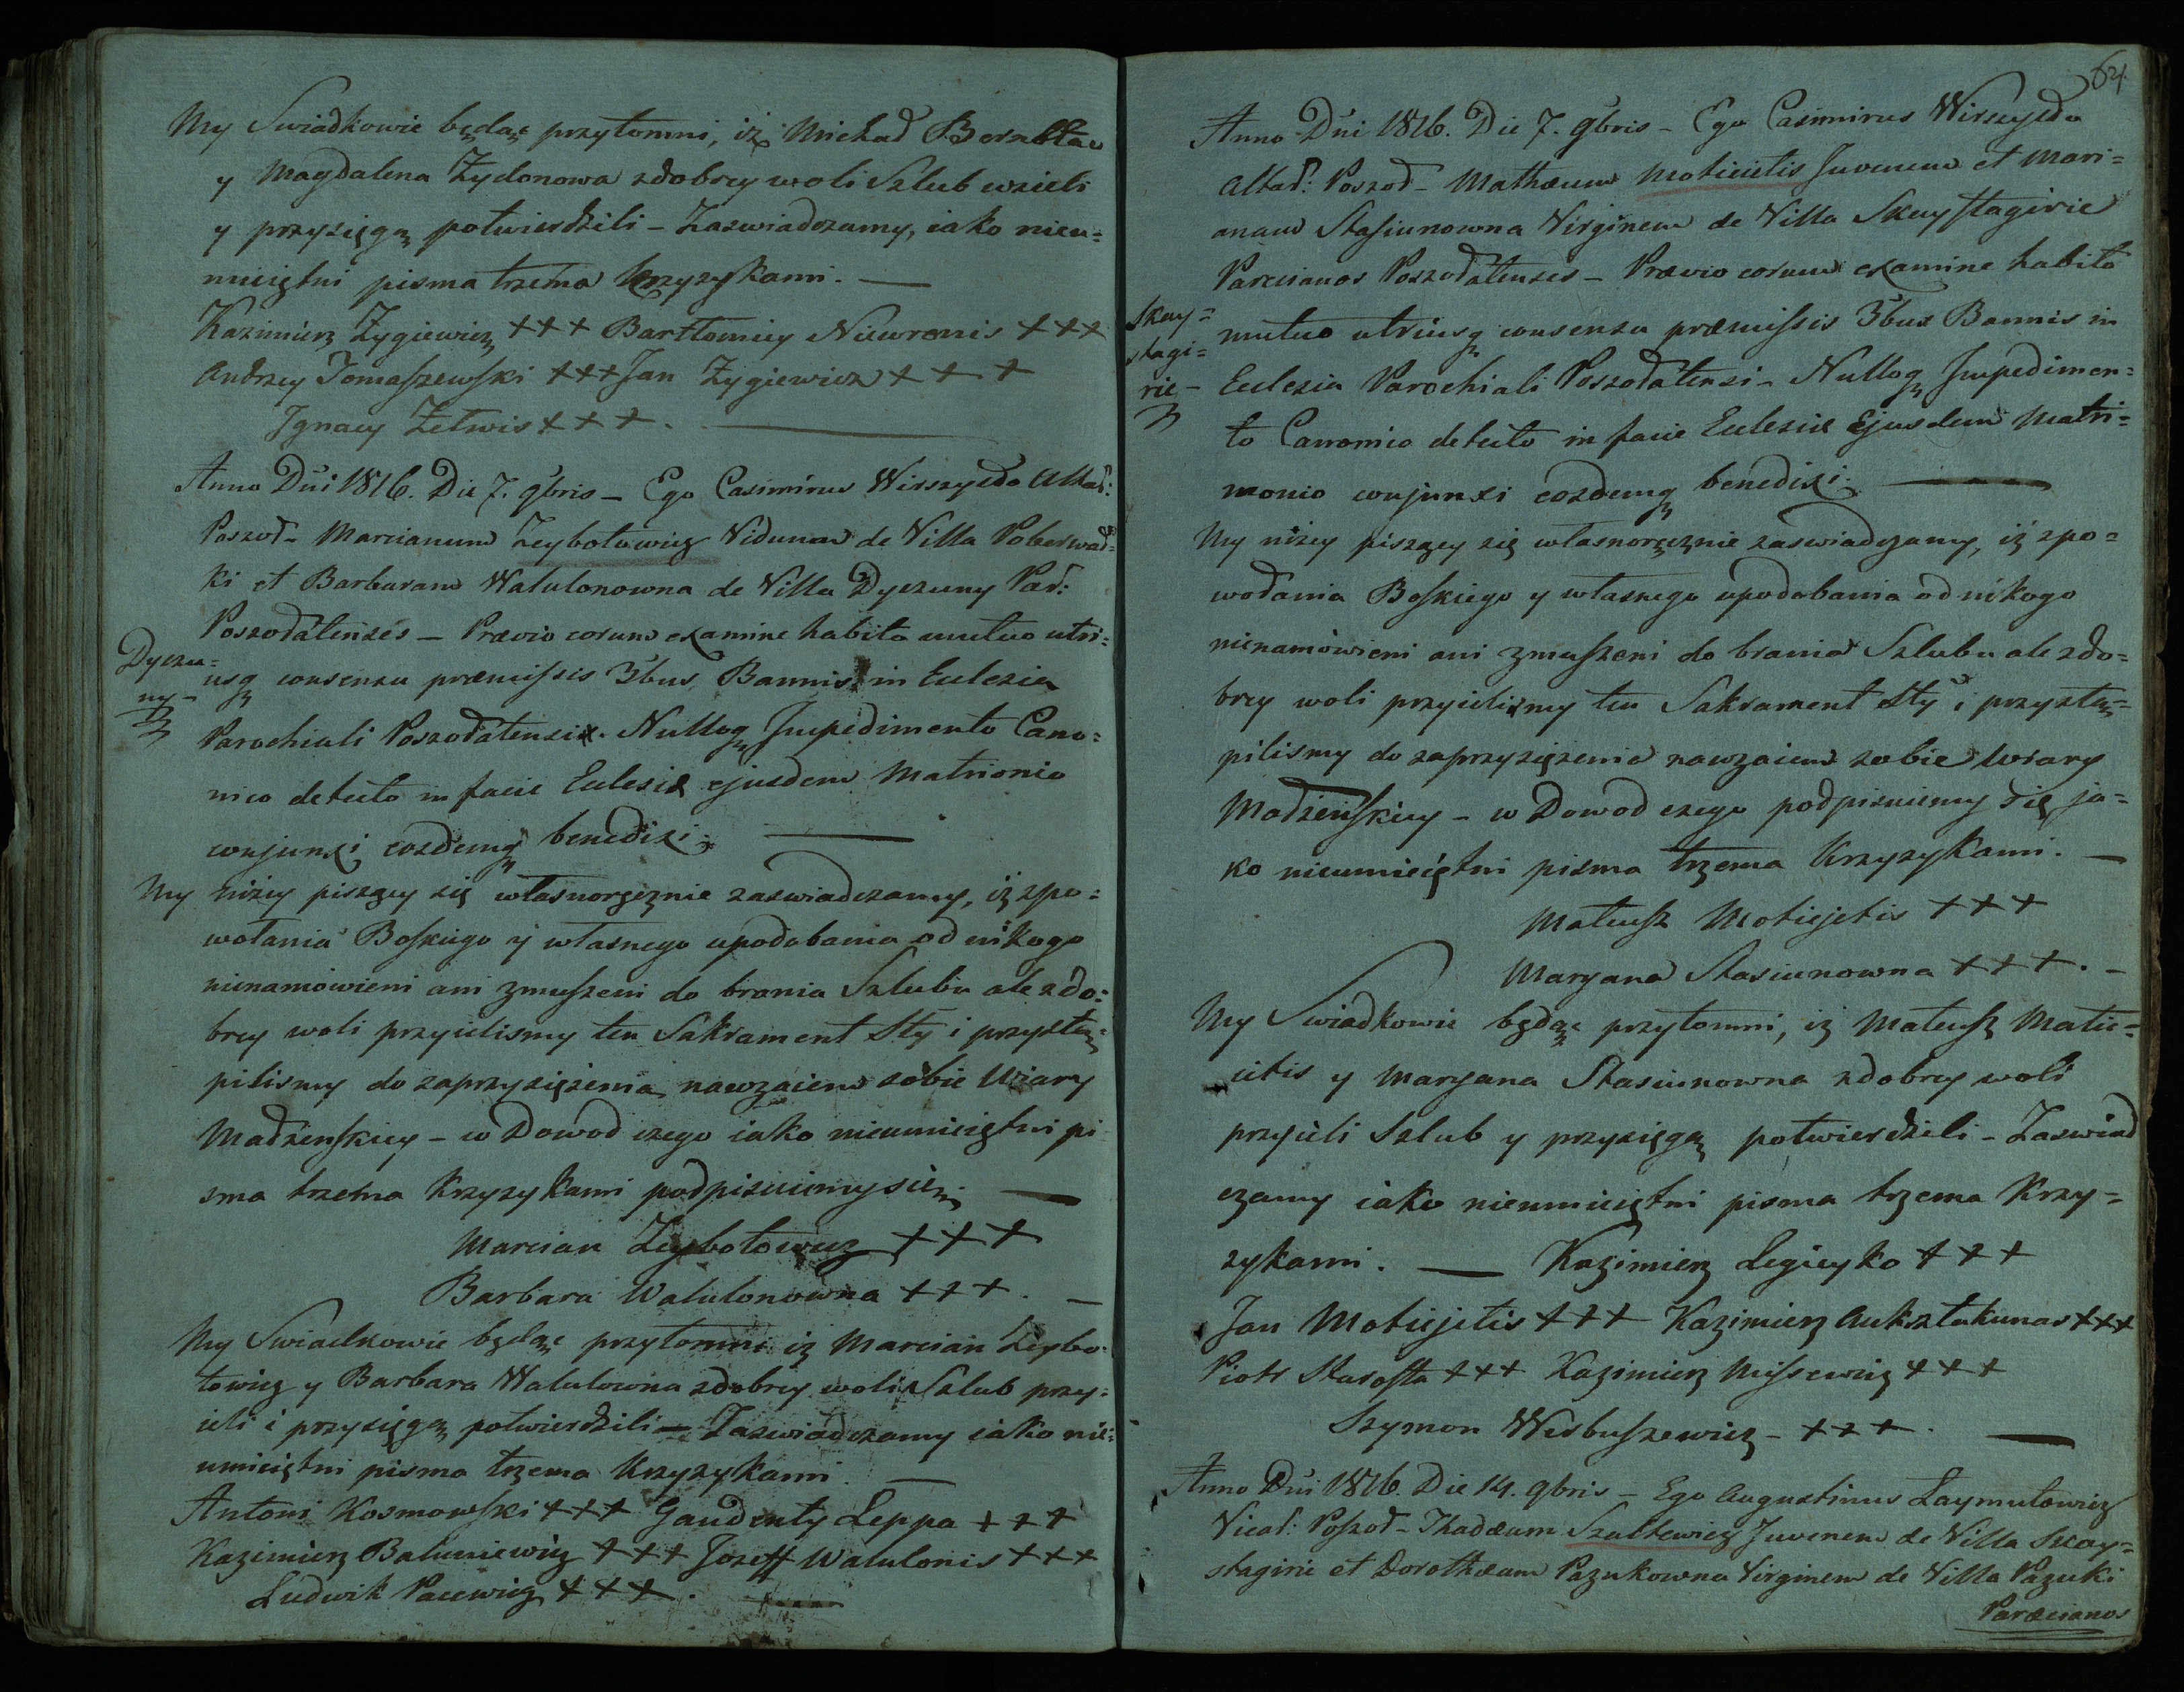 My Swiadkowie będąc przytomni, iż Michał Bernottaw
y Magdalena Żydonowa z dobrey woli Szlub wzieli
y przysięgą potwierdzili – Zaswiadczamy, iako nieu=
mieiętni pisma trzema krzyzykami. —
Kazimierz Zygiewicz +++ Bartłomiey Niewronis +++
Andrzey Tomaszewski +++ Jan Zygiewicz +++
Ignacy Zetwis +++. —
Anno Dni 1816. Die 7. 9bris – Ego Casimirus Wirszyłło Altar:
Poszoł– Marcianum Leybotowicz Viduum de Villa Poberwał=
ki et Barbaram Walulonowna de Villa Dyczuny Par:
Poszołatenses – Prævio eorum examine habito mutuo utri=
Dyczu=
ny–
3
usq consensu præmissis 3bus Bannis in Eclesia
Parochiali Poszołatensi. Nulloq Impedimento Cano=
nico detecto in facie Eclesiæ ejusdem Matrionio
conjunxi eosdemq benedixi. —
My niżey piszący się własnoręcznie zaswiadczamy, iż z po=
wołania Boskiego y własnego upodobania od nikogo
nienamówieni ani zmuszeni do brania Szlubu ale z do=
brey woli przyielismy ten Sakrament Sty i przystą=
pilismy do zaprzysiężenia nawzaiem sobie Wiary
Małżenskiey – w Dowod czego iako nieumieiętni pi
sma trzema Krzyzykami podpisuiemy się. —
Marcian Leybotowicz +++
Barbara Walulonowna +++. —
My Swiadkowie będąc przytomni iż Marcian Leybo=
towicz y Barbara Walulowna z dobrey woli Szlub przy=
ieli i przysięgą potwierdzili — Zaswiadczamy iako nie=
umieiętni pisma trzema Krzyzykami. —
Antoni Kosmowski +++ Gaudenty Leppa +++
Kazimierz Baluniewicz +++ Jozeff Walulonis +++
Ludwik Pacewicz +++. —
64
Anno Dni 1816. Die 7. 9bris – Ego Casimirus Wirszyłło
Altar: Poszoł– Mathæum Moticietis Juvenem et Mari=
anam Stasiunowna Virginem de Villa Skaystagirie
Parcianos Poszołatenses – Prævio eorum examine habito
Skay=
stagi=
rie–
3
mutuo utriusq consensu præmissis 3bus Bannis in
Eclesia Parochiali Poszołatensi – Nulloq Impedimen=
to Canonico detecto in facie Eclesiæ Ejusdem Matri=
monio conjunxi eosdemq benedixi. —
My niżey piszący się własnoręcznie zaswiadczamy, iż z po=
wołania Boskiego y własnego upodobania od nikogo
nienamówieni ani zmuszeni do brania Szlubu ale z do=
brey woli przyielismy ten Sakrament Sty i przystą=
pilismy do zaprzysiężenia nawzaiem sobie Wiary
Małżenskiey – w Dowod czego podpisuiemy się ja=
ko nieumieiętni pisma trzema Krzyzykami. —
Mateusz Motiejetis +++
Maryana Stasiunowna +++. –
My Swiadkowie będąc przytomni, iż Mateusz Matie=
ietis y Maryana Stasiunowna z dobrey woli
przyieli Szlub y przysięgą potwierdzili – Zaswiad
czamy iako nieumieiętni pisma trzema Krzy=
zykami. — Kazimierz Legieyko +++
Jan Motiejetis +++ Kazimierz Aukztakunas +++
Piotr Starosta +++ Kazimierz Missewicz +++
Szymon Wisbuszewicz – +++. —
Anno Dni 1816. Die 14. 9bris – Ego Augustinus Laymutowicz
Vicar: Poszoł– Thadæum Szaltewicz Juvenem de Villa Skay=
stagirie et Dorotheam Pazukowna Virginem de Villa Pazuki
Paræcianos